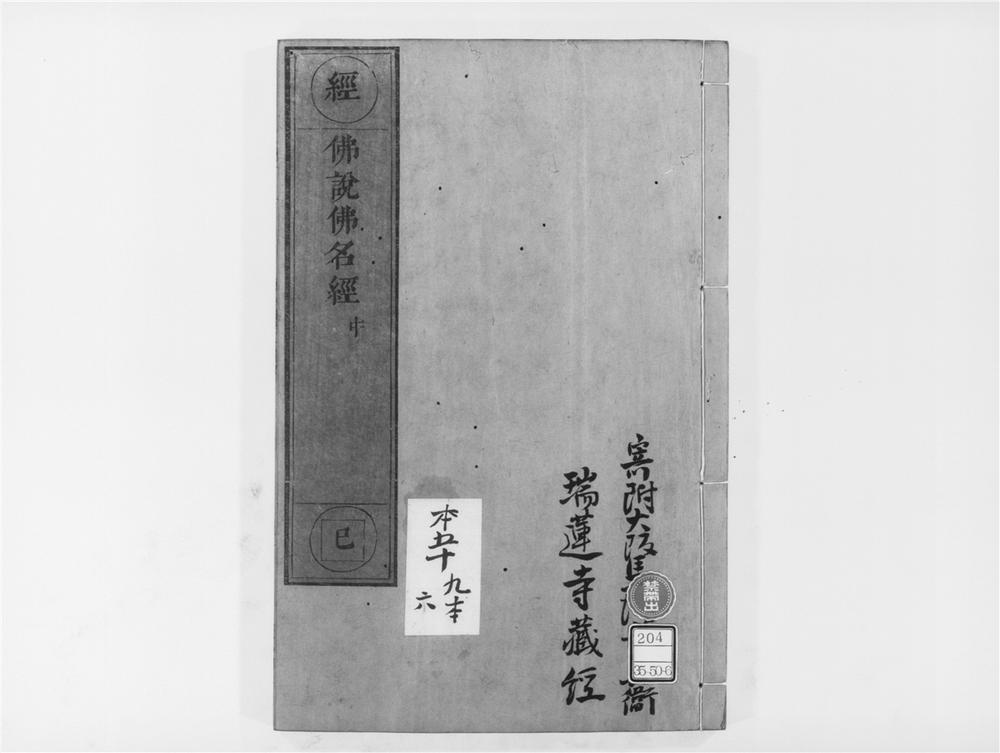 寄附大阪
衛
瑞蓮寺藏經
經
佛說佛名經
中
巳
本五十
九本
六
禁帶出
204
35-50-6